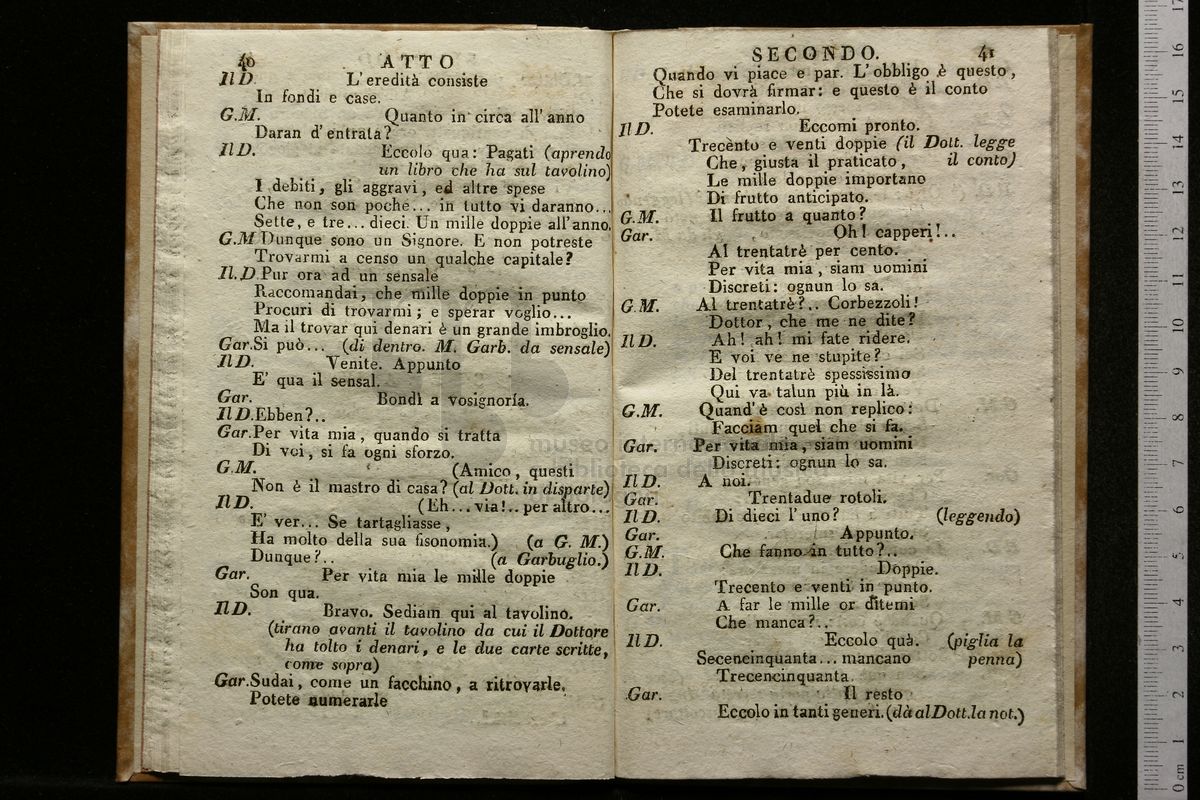 40 ATTO
Il D. L'eredità consiste
In fondi e case.
G.M. Quanto in circa all'anno
Daran d'entrata?
Il D. Eccolo qua: Pagati (aprendo
un libro che ha sul tavolino)
I debiti, gli aggravi, ed altre spese
Che non son poche... in tutto vi daranno...
Sette, e tre... dieci. Un mille doppie all'anno.
G.M Dunque sono un Signore. E non potreste
Trovarmi a censo un qualche capitale?
Il.D Pur ora ad un sensale
Raccomandai, che mille doppie in punto
Procuri di trovarmi; e sperar voglio...
Ma il trovar qui denari è un grande imbroglio.
Gar. Si può... (di dentro. M. Garb. da sensale)
Il D. Venite. Appunto
E' qua il sensal.
Gar. Bondì a vosignorìa.
Il D. Ebben?..
Gar. Per vita mia, quando si tratta
Di voi, si fa ogni sforzo.
G.M. (Amico, questi
Non è il mastro di casa? (al Dott. in disparte)
Il D. (Eh... via!.. per altro...
E' ver... Se tartagliasse,
Ha molto della sua fisonomia.) (a G. M.)
Dunque?.. (a Garbuglio.)
Gar. Per vita mia le mille doppie
Son qua.
Il D. Bravo. Sediam qui al tavolino.
(tirano avanti il tavolino da cui il Dottore
ha tolto i denari, e le due carte scritte,
come sopra)
Gar. Sudai, come un facchino, a ritrovarle.
Potete numerarle
SECONDO. 41
Quando vi piace e par. L'obbligo è questo,
Che si dovrà firmar: e questo è il conto
Potete esaminarlo.
Il D. Eccomi pronto.
Trecènto e venti doppie (il Dott. legge
Che, giusta il praticato, il conto)
Le mille doppie importano
Di frutto anticipato.
G.M. Il frutto a quanto?
Gar. Oh! capperi!..
Al trentatrè per cento.
Per vita mia, siam uomini
Discreti: ognun lo sa.
G.M. Al trentatrè?.. Corbezzoli!
Dottor, che me ne dite?
Il D. Ah! ah! mi fate ridere.
E voi ve ne stupite?
Del trentatrè spessissimo
Qui va talun più in là.
G.M. Quand'è così non replico:
Facciam quel che si fa.
Gar. Per vita mia, siam uomini
Discreti: ognun lo sa.
Il D. A noi.
Gar. Trentadue rotoli.
Il D. Di dieci l'uno? (leggendo)
Gar. Appunto.
G.M. Che fanno in tutto?..
Il D. Doppie.
Trecento e venti in punto.
Gar. A far le mille or ditemi
Che manca?..
Il D. Eccolo quà. (piglia la
Secencinquanta... mancano penna)
Trecencinquanta.
Gar. Il resto
Eccolo in tanti generi. (dà al Dott. la not.)
museo internazionale
biblioteca della musica
0 cm 1 2 3 4 5 6 7 8 9 10 11 12 13 14 15 16 17